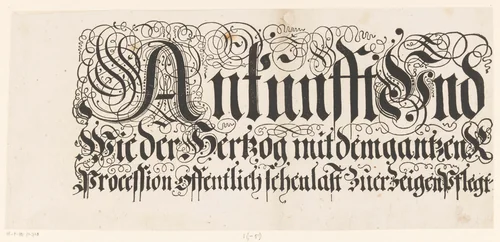 Ankunfft Und
Wie der Hertzog mit dem gantzen R
Procession offentlich sehen last Zu erzeigen Pflegt